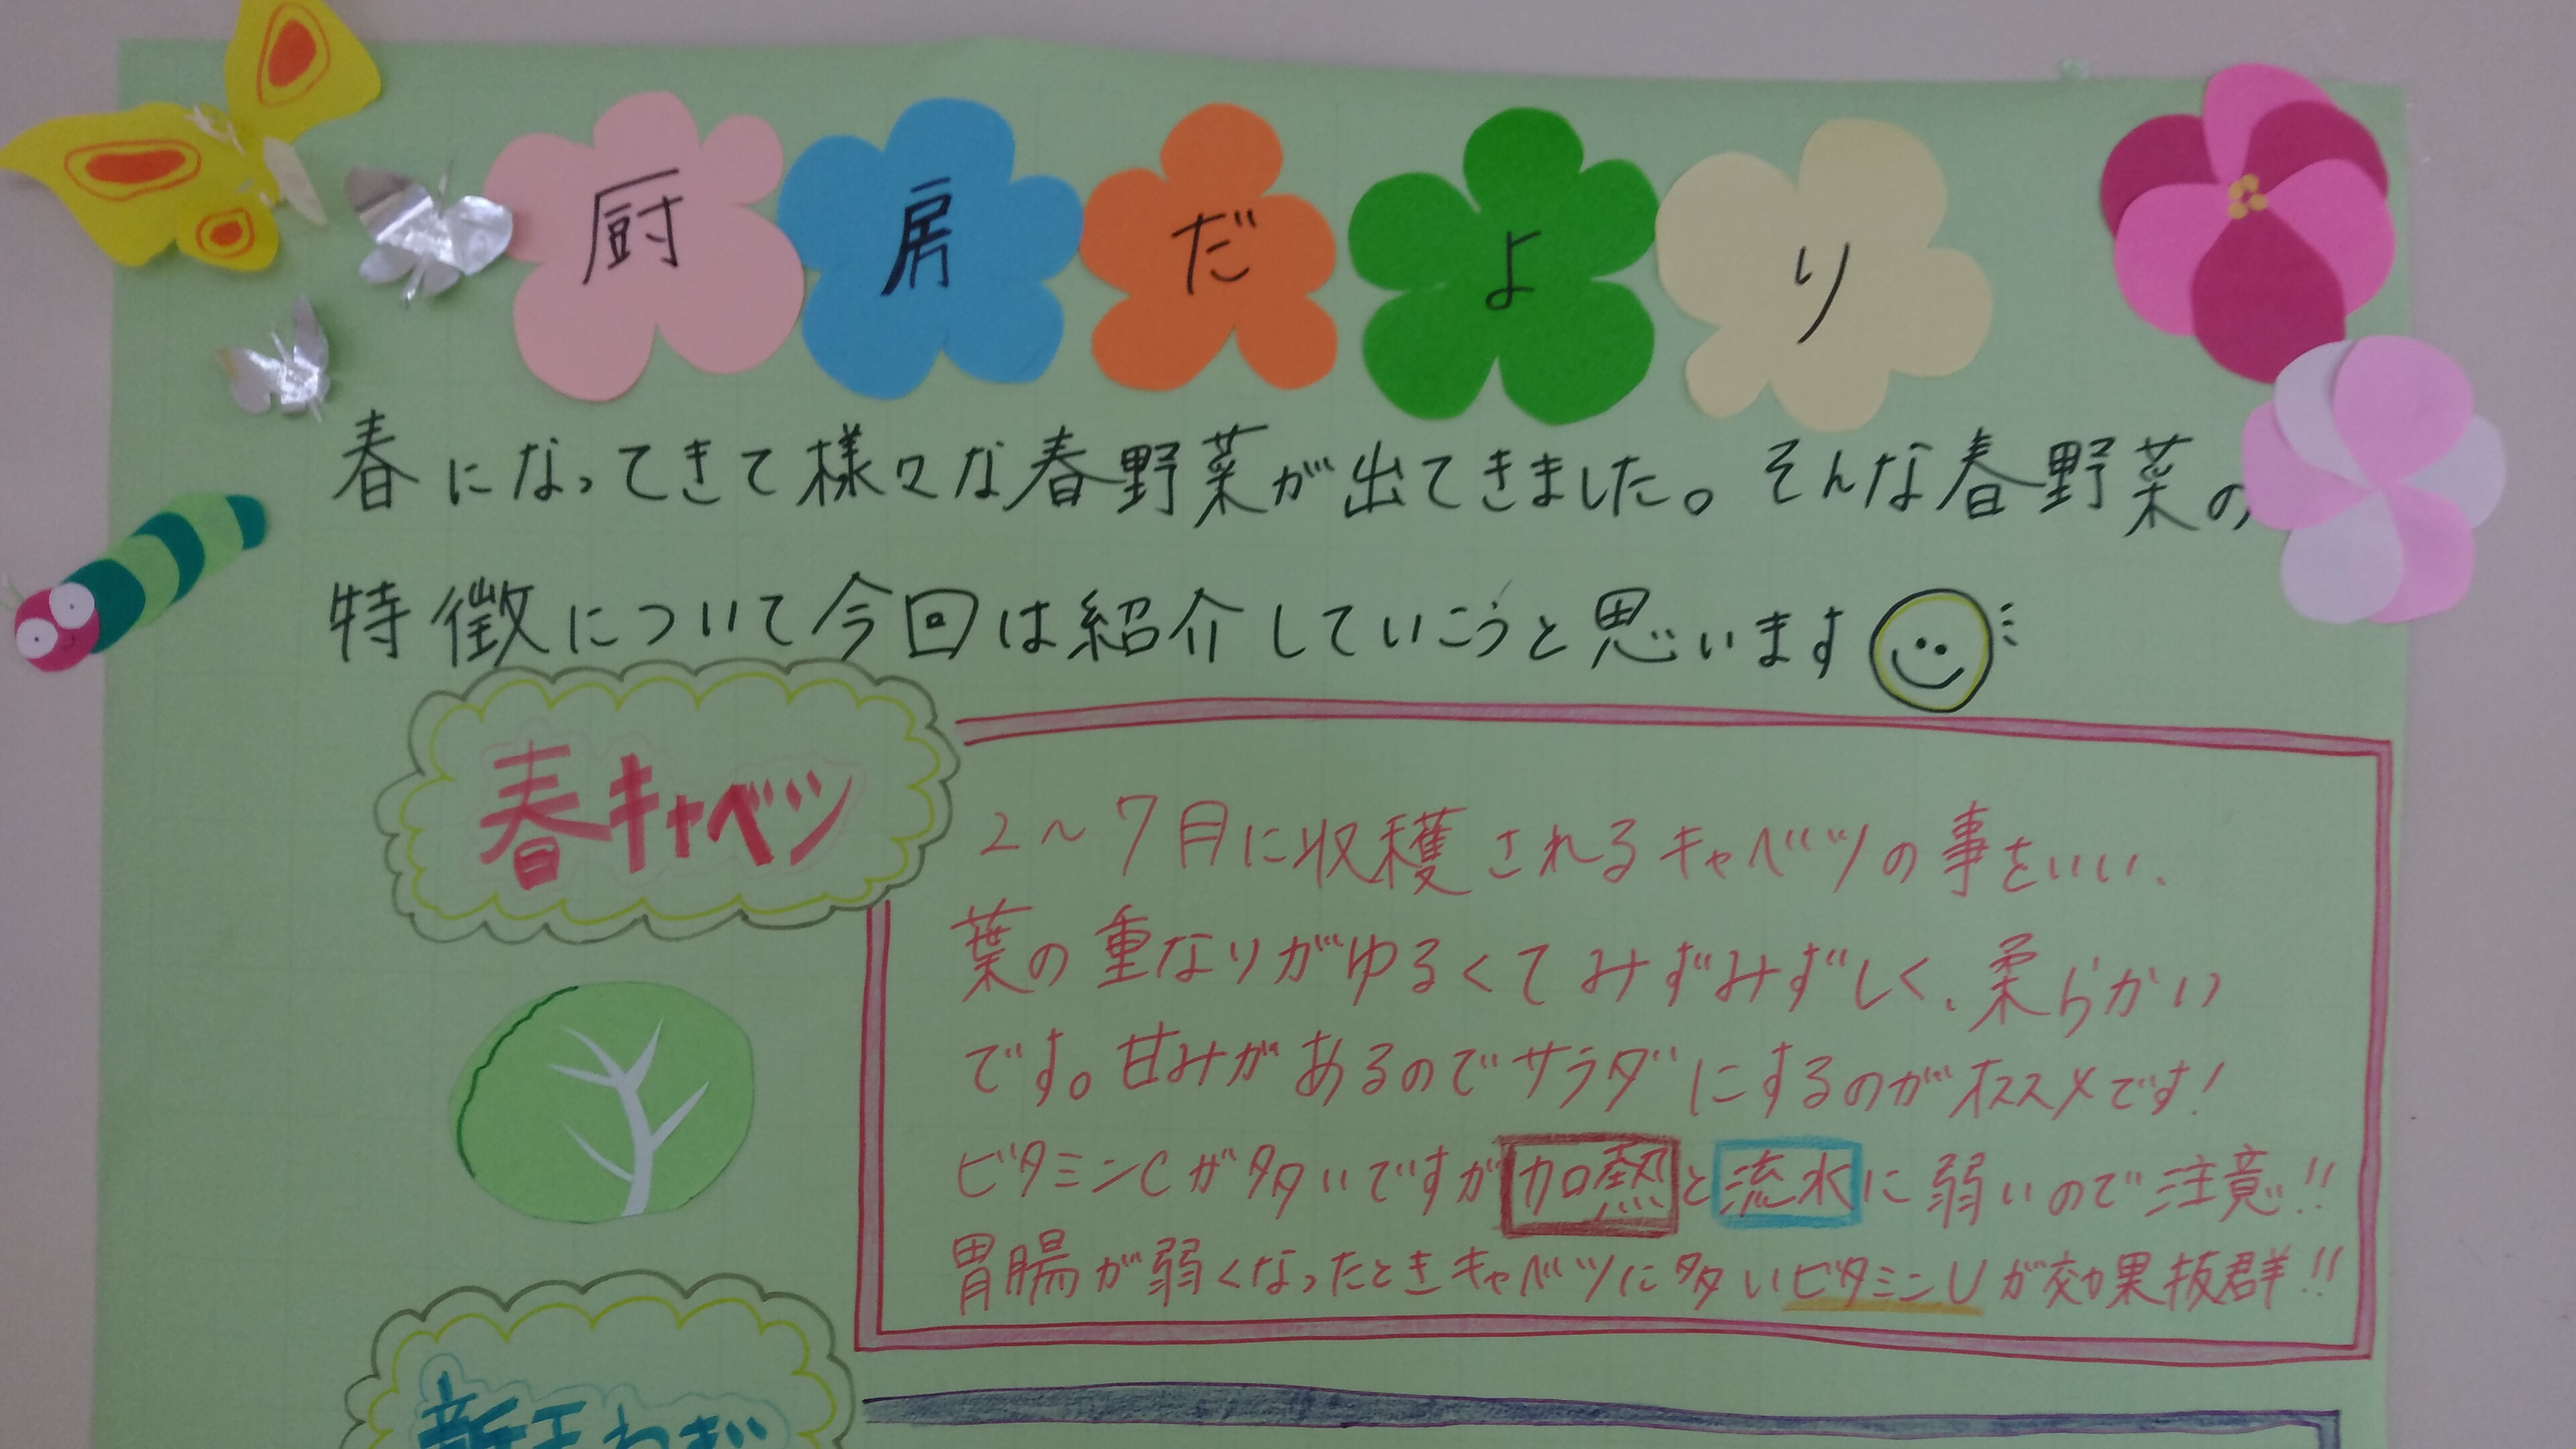 厨房だより
春になってきて様々な春野菜が出てきました。そんな春野菜の
特徴について今回は紹介していこうと思います
春キャベツ
2～7月に収穫されるキャベツの事をいい、
葉の重なりがゆるくてみずみずしく、柔らかい
です。甘みがあるのでサラダにするのがオススメです!
ビタミンCが多いですが加熱と流水に弱いので注意!!
胃腸が弱くなったときキャベツに多いビタミンUが効果抜群!!
新玉ねぎ